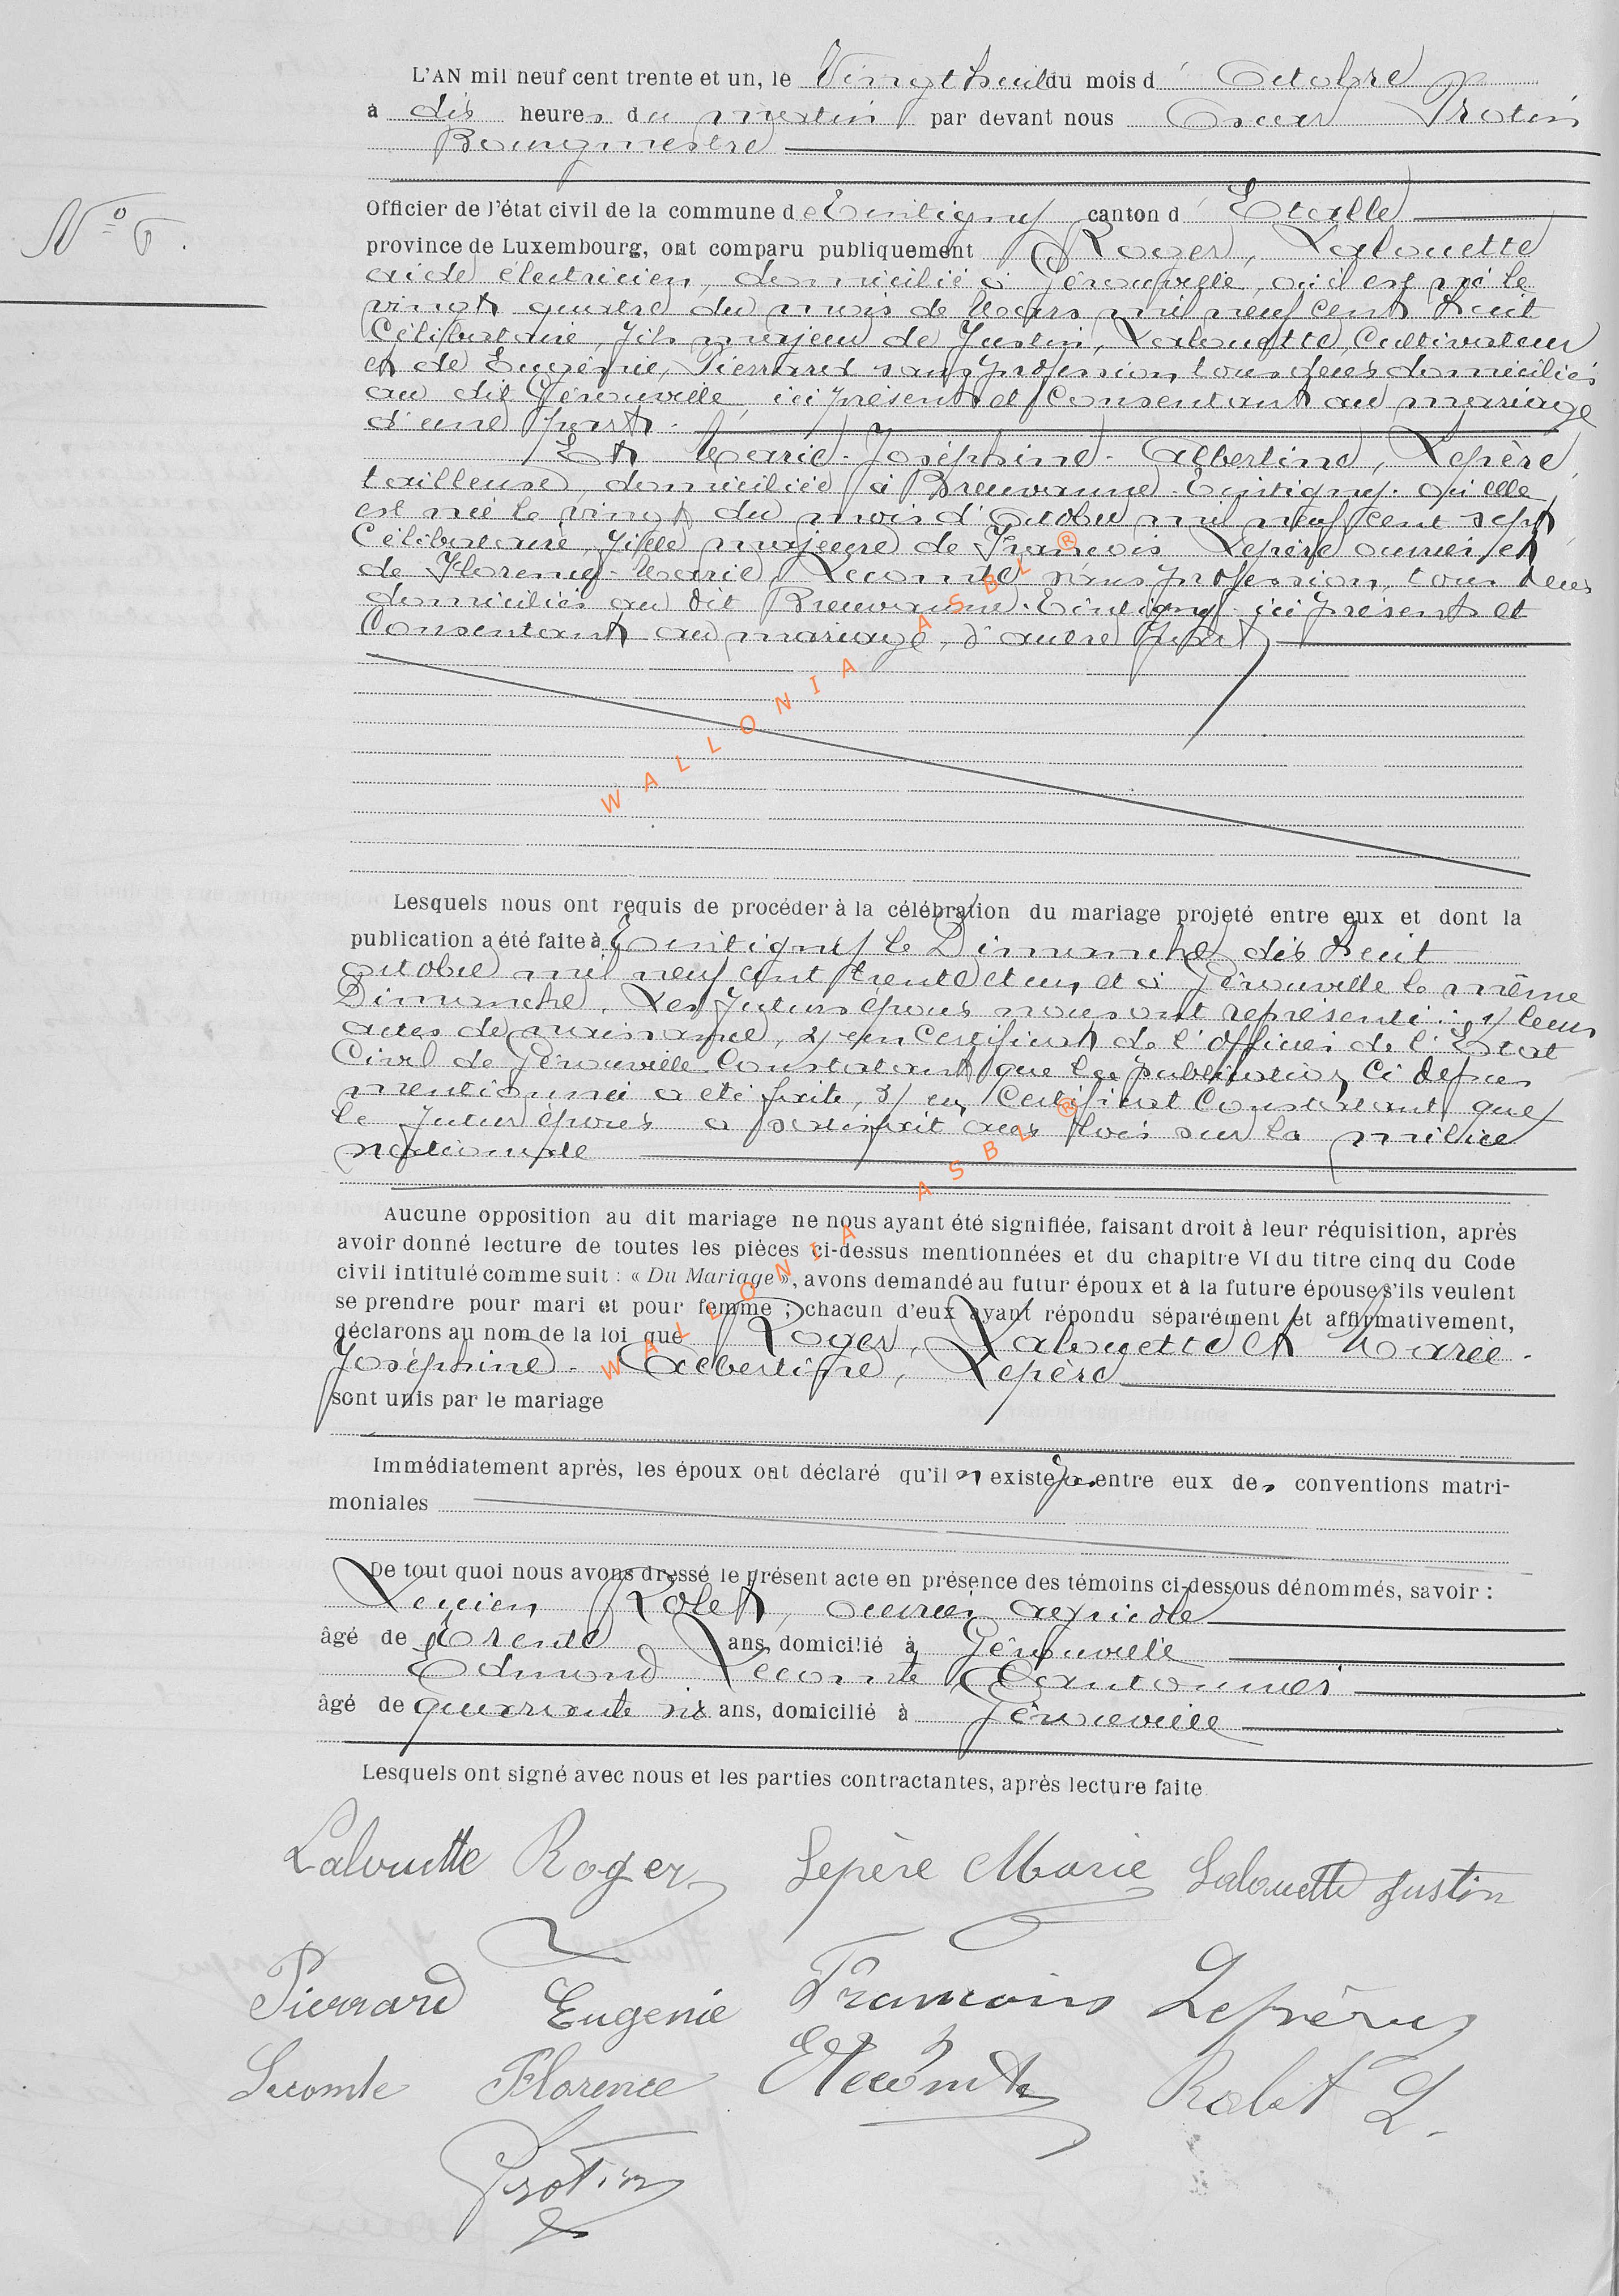 L'AN mil neuf cent trente et un, le Vingt huit du mois d' Octobre
à dix heures du matin par devant nous Oscar Protin
Bourgmestre
Officier de l'état civil de la commune de Tintigny canton d' Etalle
N° 6.
province de Luxembourg, ont comparu publiquement Roger, Lalouette
aide électricien, domicilié à Gérouville, où il est né le
vingt quatre du mois de Mars mil neuf cent huit
Célibataire, fils majeur de Justin, Lalouette, Cultivateur
et de Eugénie, Pierrard sans profession, tous deux domiciliés
au dit Gérouville, ici présent et Consentant au mariage
d'une part.
Et Marie-Joséphine-Albertine, Lepère,
tailleuse, domiciliée à Breuvanne-Tintigny. où elle
est née le vingt du mois d'Octobre mil neuf cent sept
Célibataire, fille majeure de François Lepère ouvrier et
de Florence-Marie, Lecomte sans profession, tous deux
domiciliés au dit Breuvanne-Tintigny. ici présent et
Consentant au mariage, d'autre part
WALLONIA ASBL ®
Lesquels nous ont requis de procéder à la célébration du mariage projeté entre eux et dont la
publication a été faite à Tintigny le Dimanche dix huit
octobre mil neuf cent trente et un, et à Gérouville le même
Dimanche. Les futurs époux nous ont représenté : 1/ leurs
actes de naissance, 2/ un Certificat de l'Officier de l'Etat
Civil de Gérouville Constatant que la publication Ci dessus
mentionnée a été faite, 3/ un Certificat Constatant que
le futur époux a satisfait aux lois sur la milice
nationale
WALLONIA ASBL ®
Aucune opposition au dit mariage ne nous ayant été signifiée, faisant droit à leur réquisition, après
avoir donné lecture de toutes les pièces ci-dessus mentionnées et du chapitre VI du titre cinq du Code
civil intitulé comme suit : « Du Mariage », avons demandé au futur époux et à la future épouse s'ils veulent
se prendre pour mari et pour femme ; chacun d'eux ayant répondu séparément et affirmativement,
déclarons au nom de la loi que Roger, Lalouette et Marie-
Joséphine-Albertine, Lepère
sont unis par le mariage
Immédiatement après, les époux ont déclaré qu'il n'existe pas entre eux des conventions matri-
moniales
De tout quoi nous avons dressé le présent acte en présence des témoins ci-dessous dénommés, savoir :
Lucien Robet, ouvrier agricole
âgé de trente ans, domicilié à Gérouville
Edmond Lecomte Cantonnier
âgé de quarante six ans, domicilié à Gérouville
Lesquels ont signé avec nous et les parties contractantes, après lecture faite
Lalouette Roger Lepère Marie Lalouette Justin
Pierrard Eugenie François Lepère
Lecomte Florence E Lecomte Robet L.
Protin